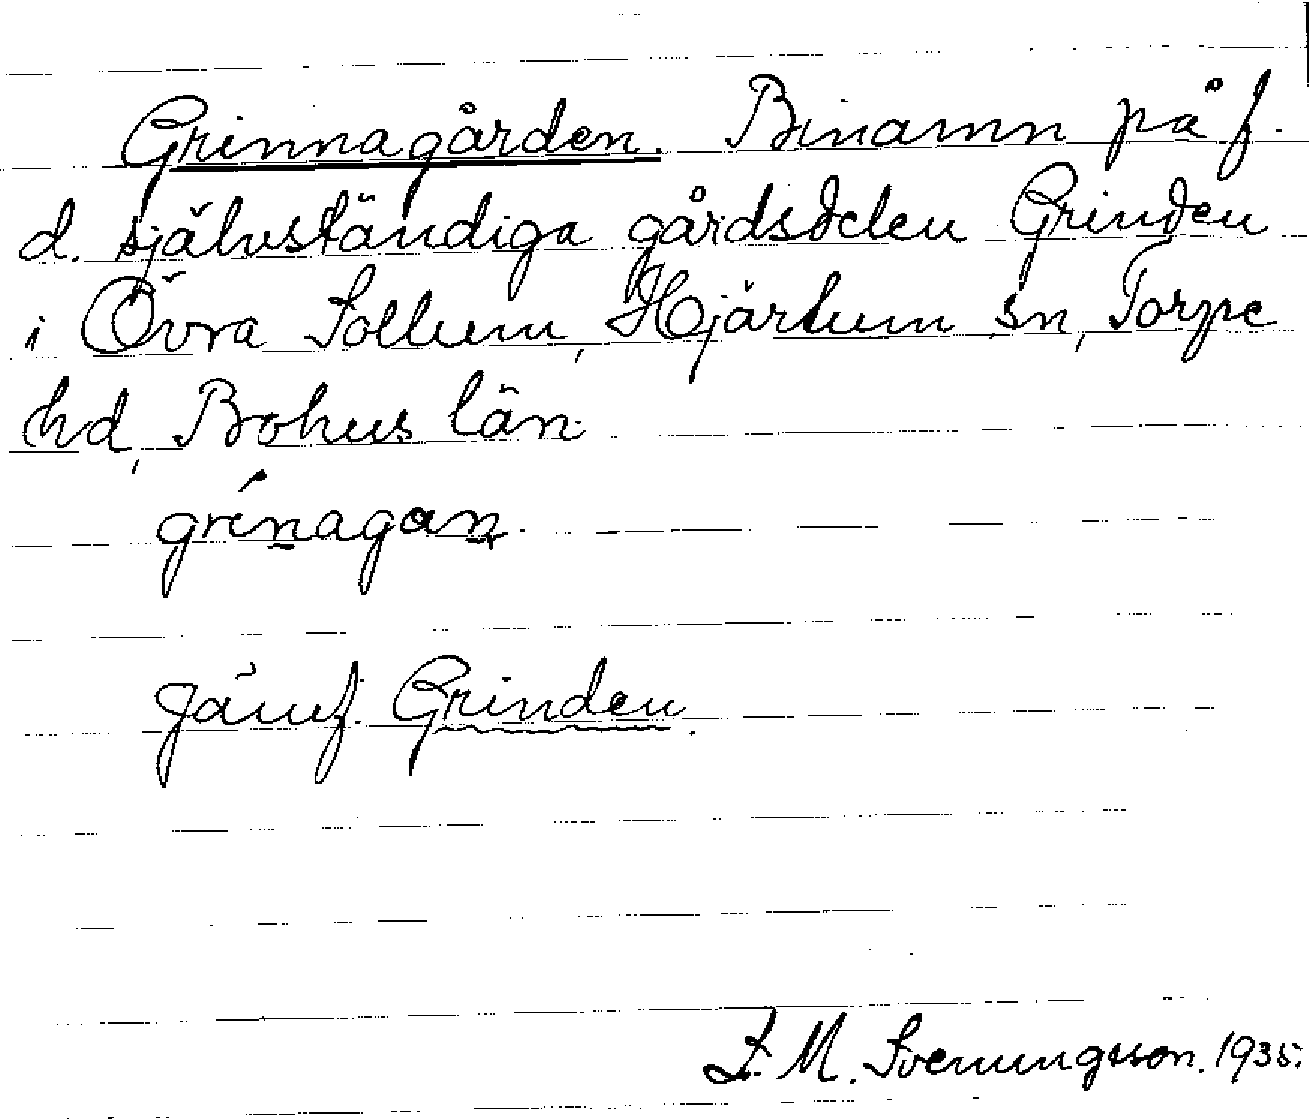 Grinnagården. Binamn på f.
d. självständiga gårdsdelen Grinden
i Övra Sollum, Hjärtum sn, Torpe
hd, Bohus län.
grinagan.
Jämf. Grinden.
J. M. Svenungsson. 1935.